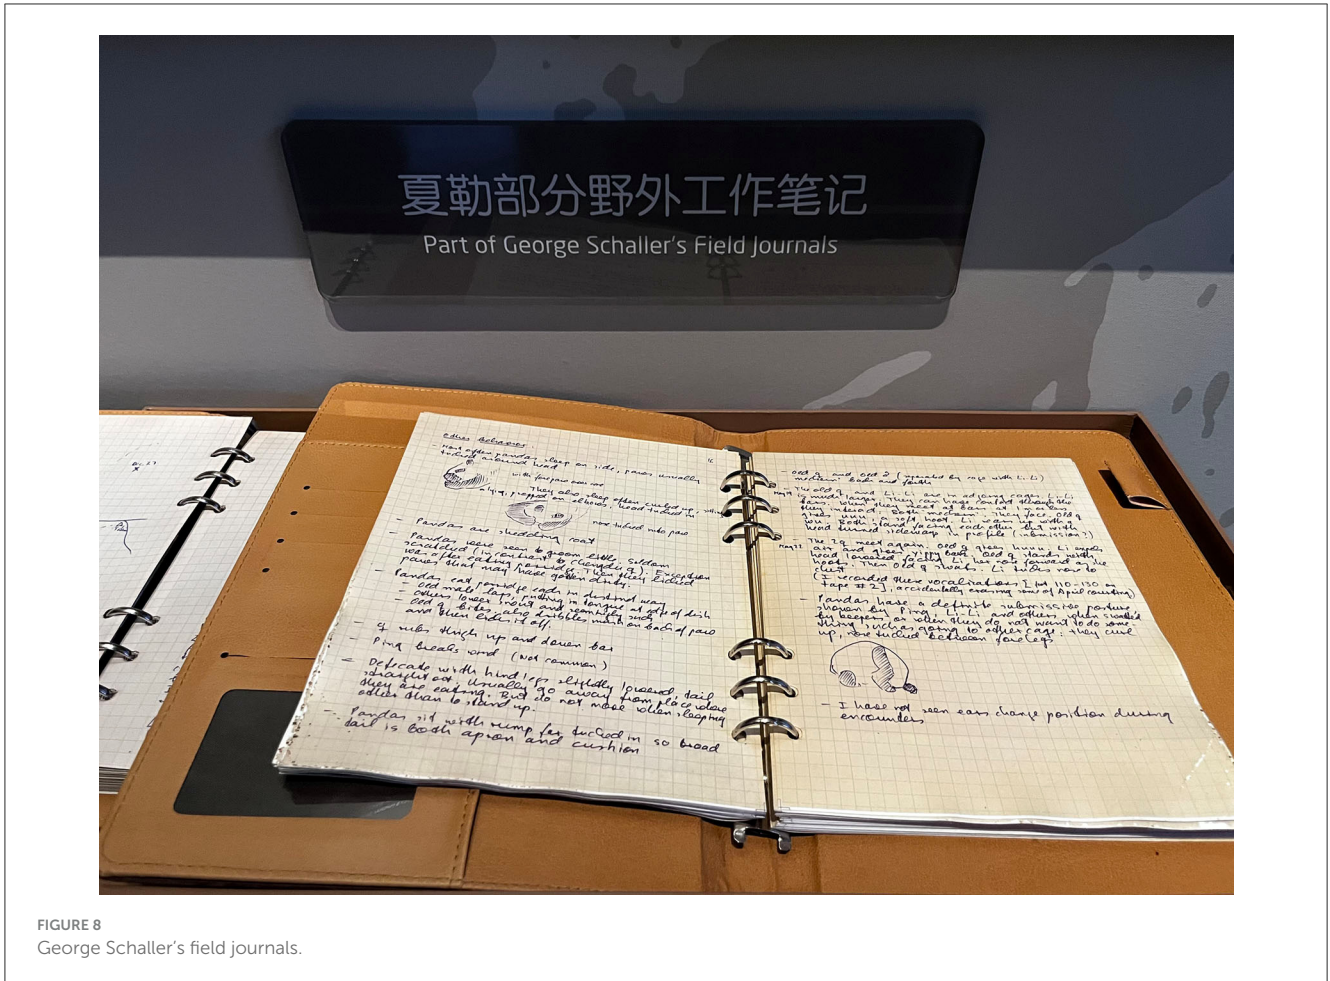 夏勒部分野外工作笔记
Part of George Schaller's Field Journals
Other behavior.
- Most often pandas sleep on side, paws usually
tucked around head
with forepaw over nose
They also sleep often curled up,
propped on elbows, head tucked in
nose tucked into paw
- Pandas are shedding coat
- Pandas were seen to groom little, seldom
scratched (in contrast to Chengdu ). Exception
was after eating porridge. Then they licked
paws that may have gotten dirty.
- Pandas eat porridge each in distinct way
old male laps, putting in tongue at edge of dish
- others lower snout and seemingly suck
old ♀ bites, also dribbles mush on back of paw
and then licks it off.
- ♀ rubs thigh up and down bar
- Ping breaks wind (not common)
- Defecate with hind legs slightly lowered, tail
straight out. Usually go away from place where
they are eating. But do not move when sleeping
other than to stand up.
- Pandas sit with rump far tucked in so broad
tail is both apron and cushion
- old ♀ and old ♂ (separated by cage with Li-Li)
back and forth
- The old ♀ and Li-Li are in adjoining cages. Li-Li
is much larger. They can have contact through the
bars. When they meet at bars at 1 m or less
Both They face. Old ♀
soft hoot. Li
Both stand facing each other but with
head turned sideways in profile (submission?)
The 2 ♀ meet again. Old ♀ gives
air and gives bark. Old ♀ stands with
head lowered facing Li. Li has nose forward and she
hoots. Then old ♀ snorts. Li holds nose to
chest
(I recorded these vocalizations, [ft 110-130 on
tape #2], accidentally erasing some of April courting)
- Pandas have a definite submissive posture
shown by Ping, Li-Li and others when swatted
by keepers or when they do not want to do some-
thing such as going to other cage: they curl
up, nose tucked between forelegs
- I have not seen ears change position during
encounters
FIGURE 8
George Schaller's field journals.